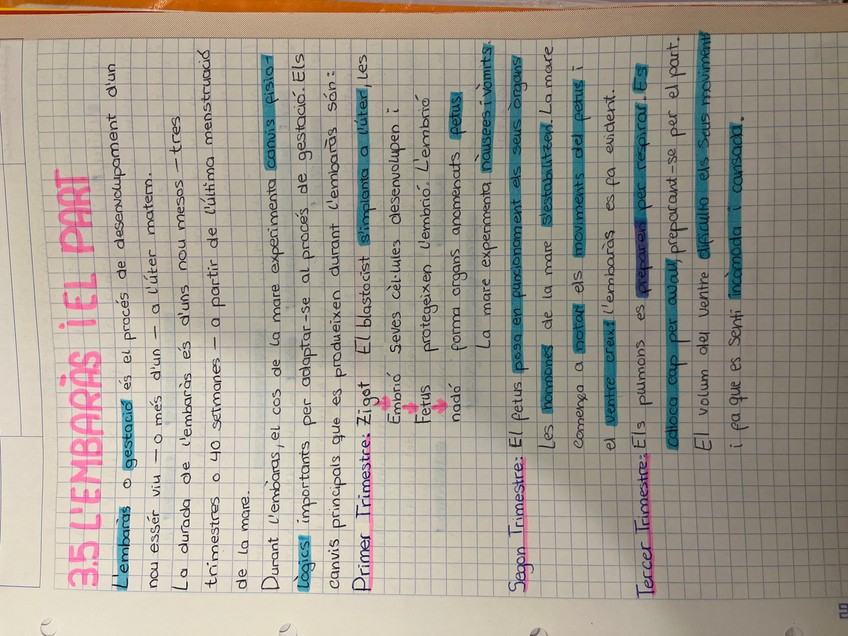 3.5 L'EMBARÀS i EL PART
L'embaràs o gestació és el procés de desenvolupament d'un
nou essér viu — o més d'un — a l'úter matern.
La durada de l'embaràs és d'uns nou mesos — tres
trimestres o 40 setmanes — a partir de l'última menstruació
de la mare.
Durant l'embaràs, el cos de la mare experimenta canvis fisio-
lògics importants per adaptar-se al procés de gestació. Els
canvis principals que es produeixen durant l'embaràs són:
Primer Trimestre: Zigot El blastocist s'implanta a l'úter, les
Embrió seves cèl·lules desenvolupen i
Fetus protegeixen l'embrió. L'embrió
nadó forma organs anomenats fetus.
La mare experimenta nàusees i vòmits.
Segon Trimestre: El fetus posa en funcionament els seus òrgans
Les hormones de la mare s'estabilitzen. La mare
comença a notar els moviments del fetus i
el ventre creix i l'embaràs es fa evident.
Tercer Trimestre: Els pulmons es preparen per respirar. Es
col·loca cap per avall, preparant-se per el part.
El volum del ventre dificulta els seus moviments
i fa que es senti incòmoda i cansada.